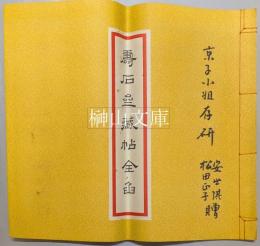 京子小姐存研
安世洪
松田正子 贈
寿石亝藏帖全函
榊山文庫